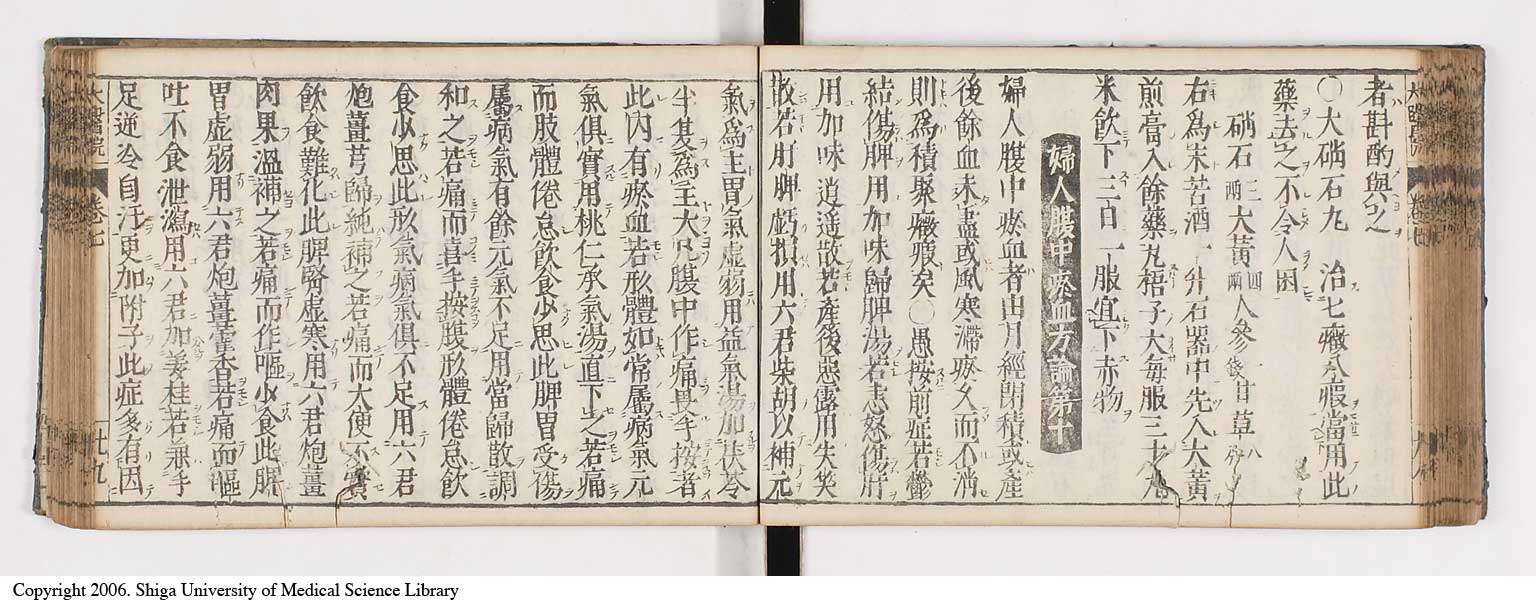 者斟酌與之
〇大硝石丸 治七癥八瘕當用此
藥去之不令人困
硝石三兩大黃四兩人參 甘草八
右為末苦酒一升石器中先入大黃
煎膏入餘藥丸梧子大每服三十丸
米飲下三日一服宜下赤物
婦人腹中瘀血方論第十
婦人腹中瘀血者由月經閉積或產
後餘血未盡或風寒滯瘀久而不消
則為積聚癥瘕矣〇愚按前症若鬱
結傷脾用加味歸脾湯若恚怒傷肝
用加味逍遙散若產後惡露用失笑
散若肝脾虧損用六君柴胡以補元
氣為主胃氣虛弱用益氣湯加茯苓
半夏為主大凡腹中作痛畏手按者
此內有瘀血若形體如常屬病氣元
氣俱實用桃仁承氣湯直下之若痛
而肢體倦怠飲食少思此脾胃受傷
屬病氣有餘元氣不足用當歸散調
和之若痛而喜手按腹形體倦怠飲
食少思此形氣病氣俱不足用六君
炮薑芎歸純補之若痛而大便不實
飲食難化此脾腎虛寒用六君炮薑
肉果溫補之若痛而作嘔少食此脾
胃虛弱用六君炮薑藿香若痛而嘔
吐不食泄瀉用六君加姜桂若兼手
足逆冷自汗更加附子此症多有因
大醫院
卷七
廿九
Copyright 2006. Shiga University of Medical Science Library